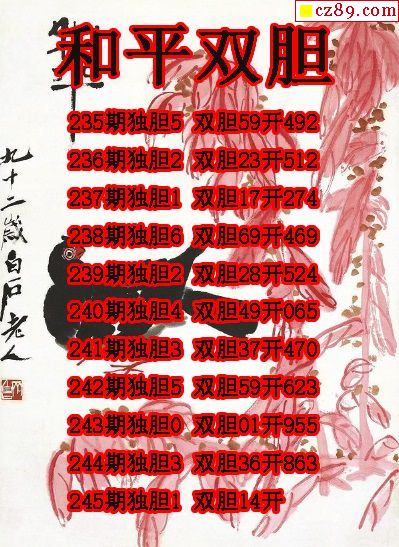 cz89.com
和平双胆
235期独胆5 双胆59开492
236期独胆2 双胆23开512
237期独胆1 双胆17开274
238期独胆6 双胆69开469
239期独胆2 双胆28开524
240期独胆4 双胆49开065
241期独胆3 双胆37开470
242期独胆5 双胆59开623
243期独胆0 双胆01开955
244期独胆3 双胆36开863
245期独胆1 双胆14开
九十二岁白石老人